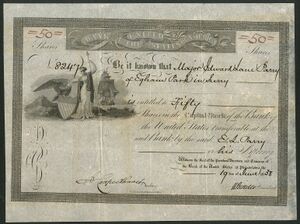 50 BANK OF THE UNITED STATES 50
Shares Shares
8247 Be it known that Major Edward Lane Parry
of Egham Park in Surry
is entitled to Fifty
Shares in the Capital Stock of the Bank of
the United States transferable at the
said Bank by the said E. L. Parry
or his Attorney
Witness the Seal of the President Directors and Company of
the Bank of the United States at Philadelphia
19th March 1838
Cashier